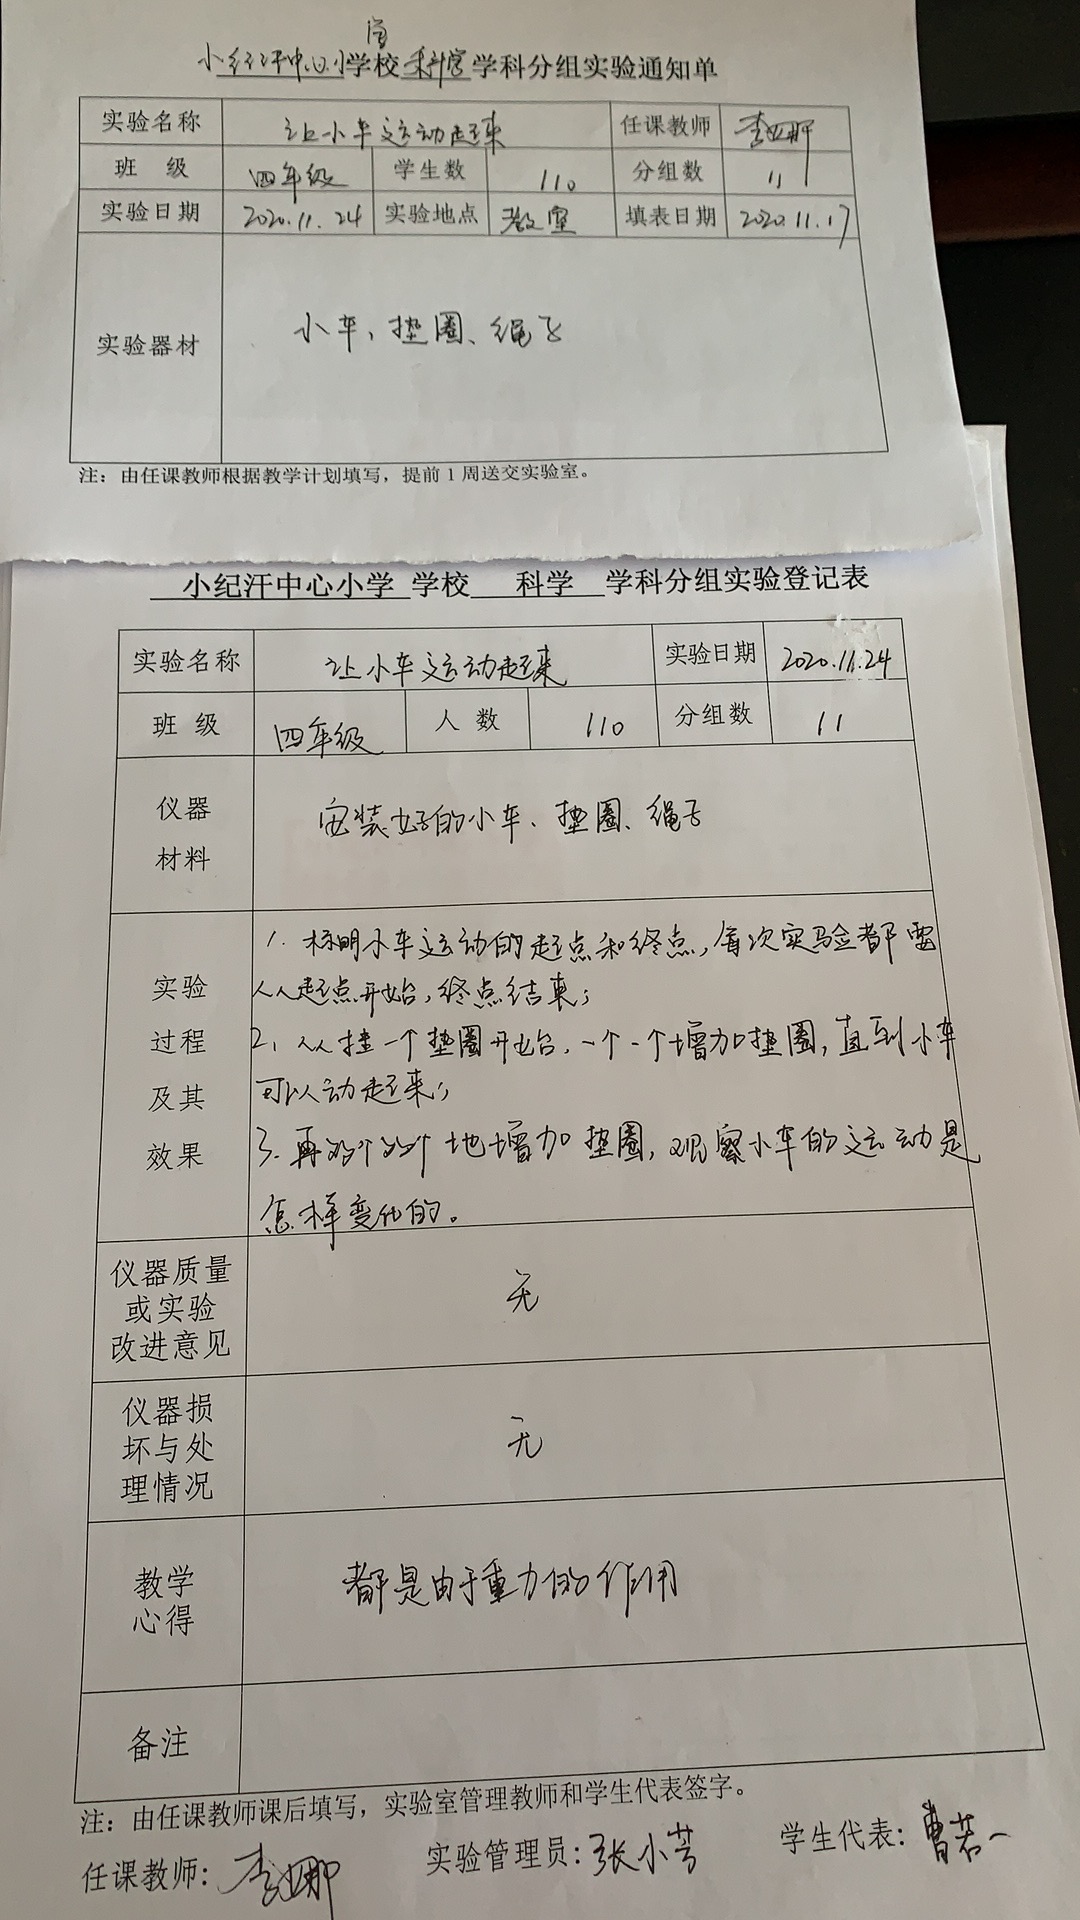 小纪汗中心小学学校科学学科分组实验通知单
实验名称 让小车运动起来 任课教师 李亚娜
班 级 四年级 学生数 110 分组数 11
实验日期 2020.11.24 实验地点 教室 填表日期 2020.11.17
实验器材 小车、垫圈、绳子
注：由任课教师根据教学计划填写，提前1周送交实验室。
小纪汗中心小学 学校 科学 学科分组实验登记表
实验名称 让小车运动起来 实验日期 2020.11.24
班 级 四年级 人 数 110 分组数 11
仪器
材料
安装好的小车、垫圈、绳子
实验
过程
及其
效果
1. 标明小车运动的起点和终点，每次实验都要
从起点开始，终点结束；
2、从挂一个垫圈开始，一个一个增加垫圈，直到小车
可以动起来；
3. 再两个两个地增加垫圈，观察小车的运动是
怎样变化的。
仪器质量
或实验
改进意见
无
仪器损
坏与处
理情况
无
教学
心得
都是由于重力的作用
备注
注：由任课教师课后填写，实验室管理教师和学生代表签字。
任课教师: 李亚娜 实验管理员: 张小芳 学生代表: 曹若一